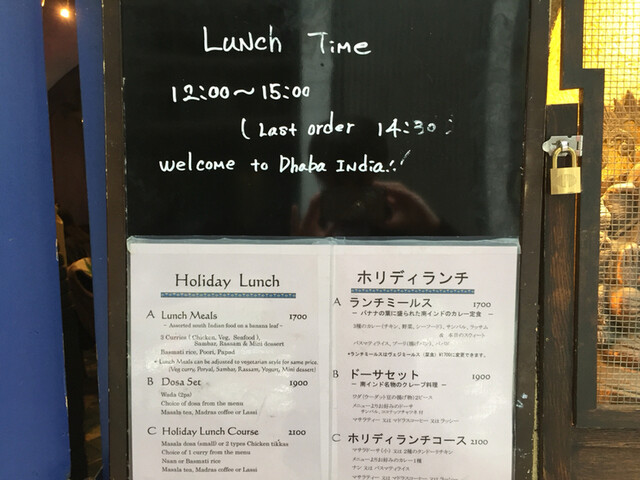 Lunch Time
12:00～15:00
(Last order 14:30)
Welcome to Dhaba India!!
Holiday Lunch
A Lunch Meals 1700
~ Assorted south Indian food on a banana leaf ~
3 Curries ( Chicken, Veg, Seafood ),
Sambar, Rasam & Mini dessert
Basmati rice, Poori, Papad
* Lunch Meals can be adjusted to vegetarian style for same price.
(Veg curry, Poryal, Sambar, Rassam, Yogurt, Mini dessert)
B Dosa Set 1900
Wada (2ps)
Choice of dosa from the menu
Masala tea, Madras coffee or Lassi
C Holiday Lunch Course 2100
Masala dosa (small) or 2 types Chicken tikkas
Choice of 1 curry from the menu
Naan or Basmati rice
Masala tea, Madras coffee or Lassi
ホリディランチ
A ランチミールス 1700
～ バナナの葉に盛られた南インドのカレー定食 ～
3種のカレー(チキン、野菜、シーフード)、サンバル、ラッサム
バスマティライス、プーリ(揚げパン)、パパド
B ドーサセット 1900
～ 南インド名物のクレープ料理 ～
ワダ(ウーダット豆の揚げ物)2ピース
メニューよりお好みのドーサ
サンバル、ココナッツチャトニ 付
マサラティー 又は マドラスコーヒー 又は ラッシー
C ホリディランチコース 2100
マサラドーサ(小) 又は 2種のタンドーリチキン
メニューよりお好みのカレー1種
ナン 又は バスマティライス